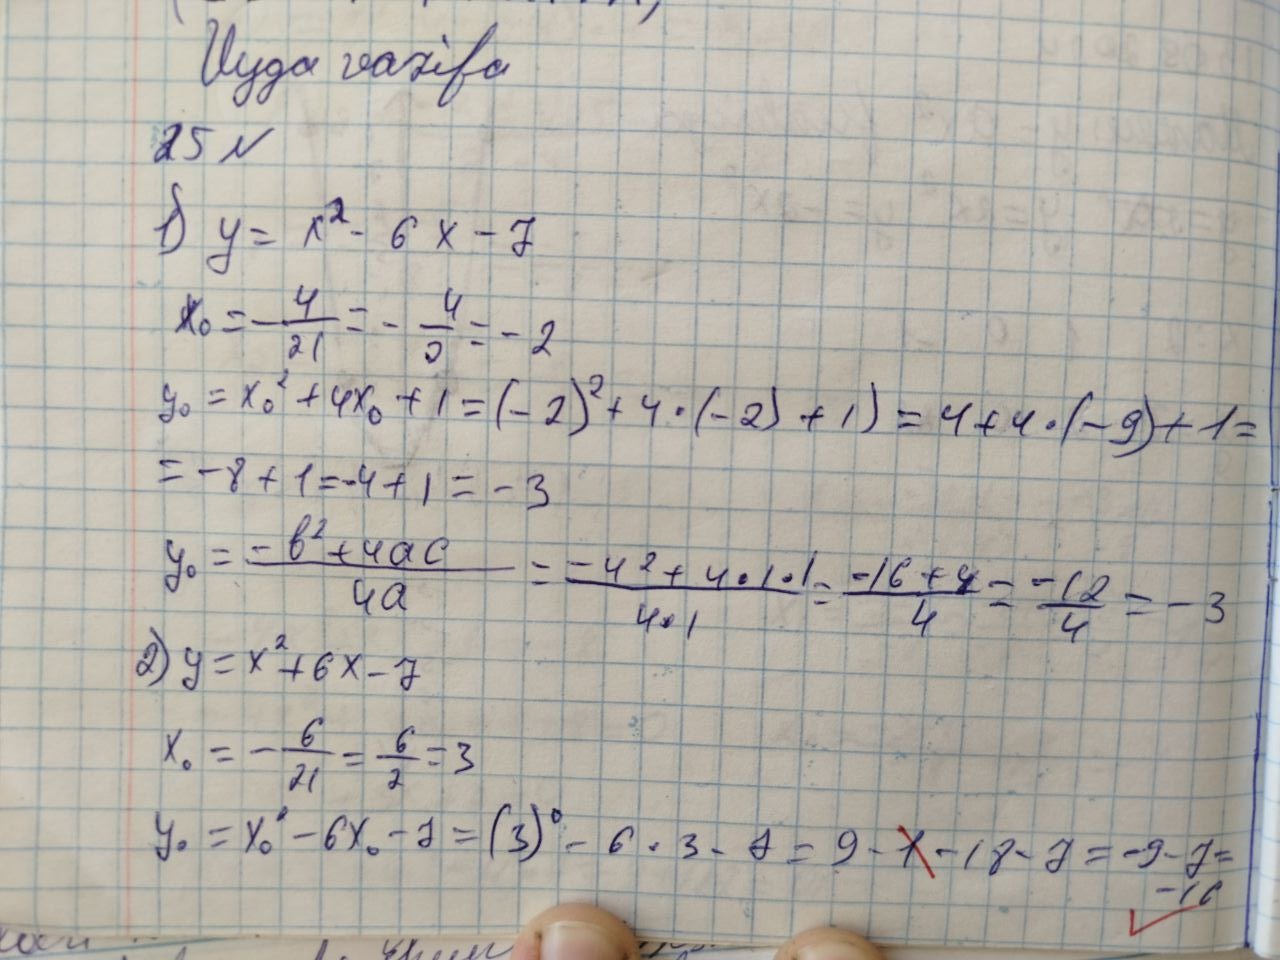 Uyga vazifa
25 N
1) y = x² - 6x - 7
x₀ = -4/21 = -4/2 = -2
y₀ = x₀² + 4x₀ + 1 = (-2)² + 4·(-2) + 1) = 4 + 4·(-9) + 1 =
= -8 + 1 = -4 + 1 = -3
y₀ = -b² + 4ac / 4a = -4² + 4·1·1 / 4·1 = -16 + 4 / 4 = -12 / 4 = -3
2) y = x² + 6x - 7
x₀ = -6/21 = 6/2 = 3
y₀ = x₀² - 6x₀ - 7 = (3)⁰ - 6·3 - 7 = 9 - 18 - 7 = -9 - 7 =
-16